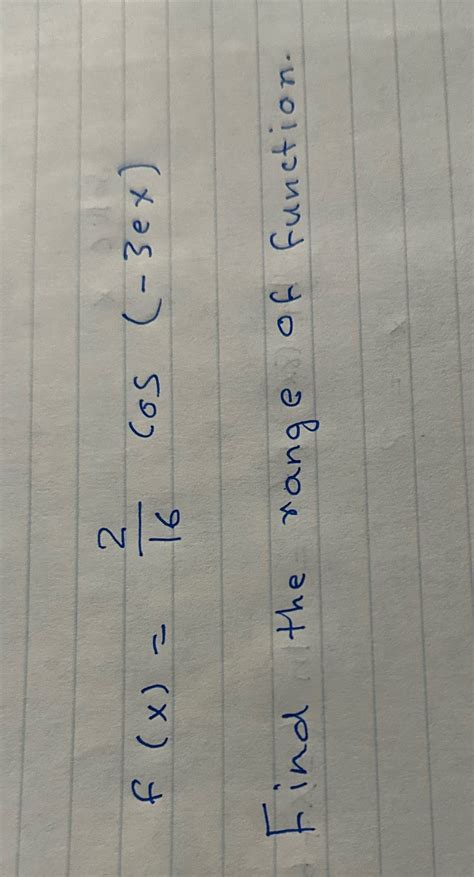 f(x) = 2/16 cos (-3ex)
Find the range of function.